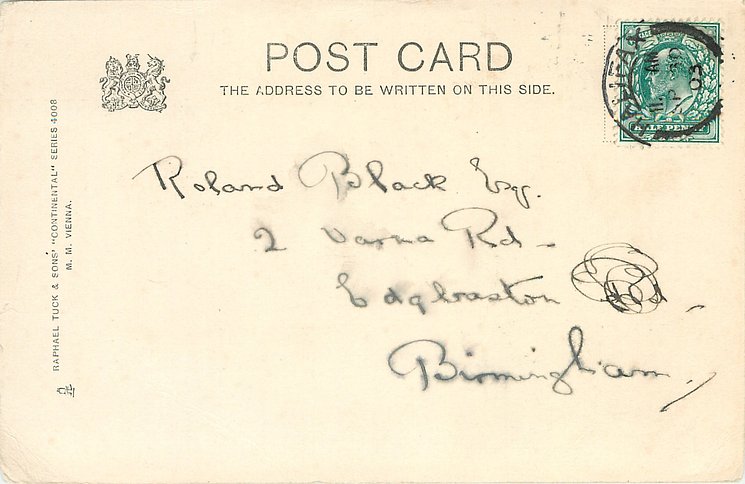 POST CARD
THE ADDRESS TO BE WRITTEN ON THIS SIDE.
HALF PENNY
03
Roland Black Esq.
2 Varna Rd -
Edgbaston
Birmingham.
RAPHAEL TUCK & SONS' "CONTINENTAL" SERIES 4008
M. M. VIENNA.